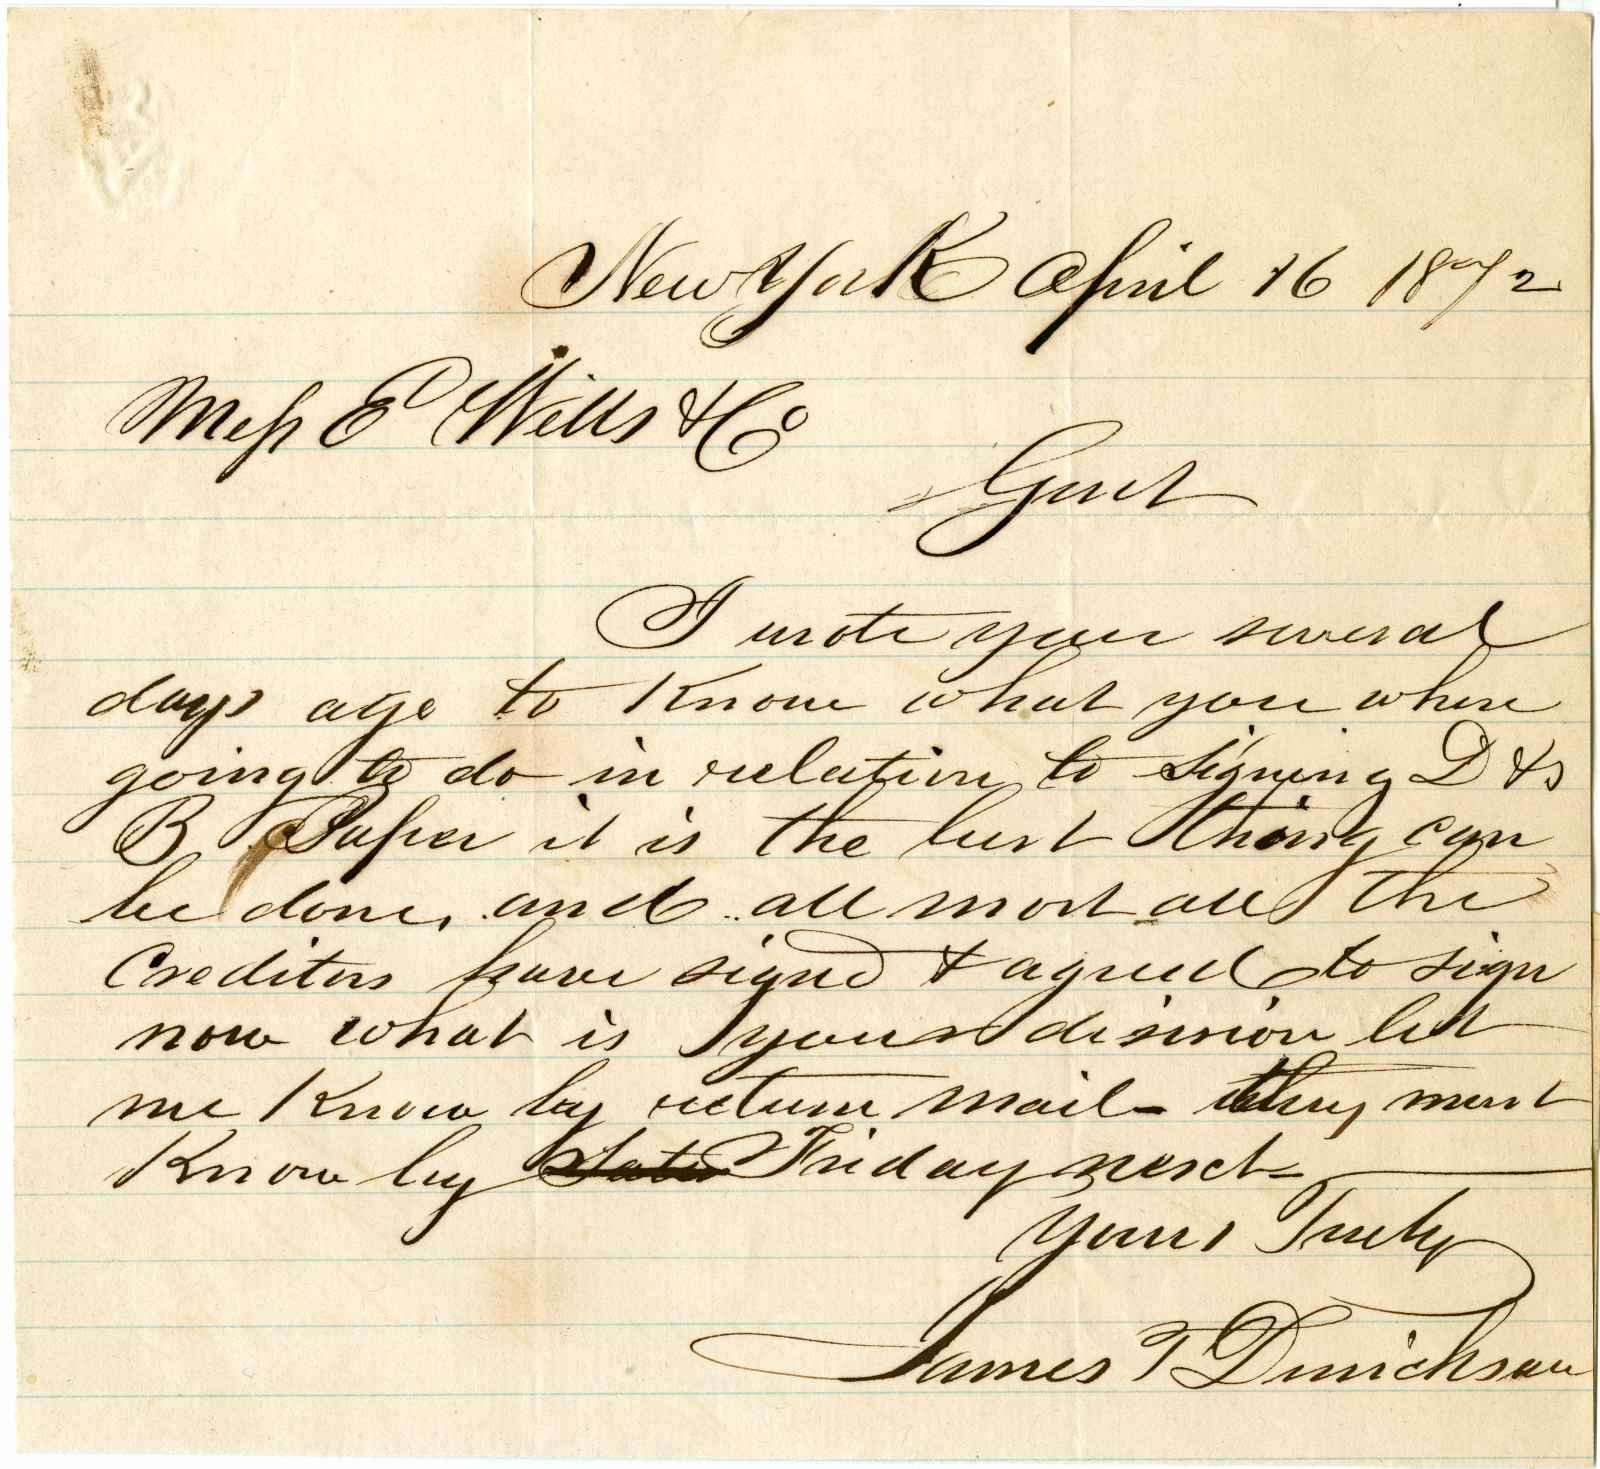 New York April 16 1872
Mess E Wills & Co
Gent
I wrote you several
days ago to Know what you where
going to do in relation to signing D &
B Paper it is the best thing can
be done, and all most all the
Creditors have signd & agreed to sign
now what is your dission let
me Know by return mail - they must
Know by Friday next -
Yours Truly
James T